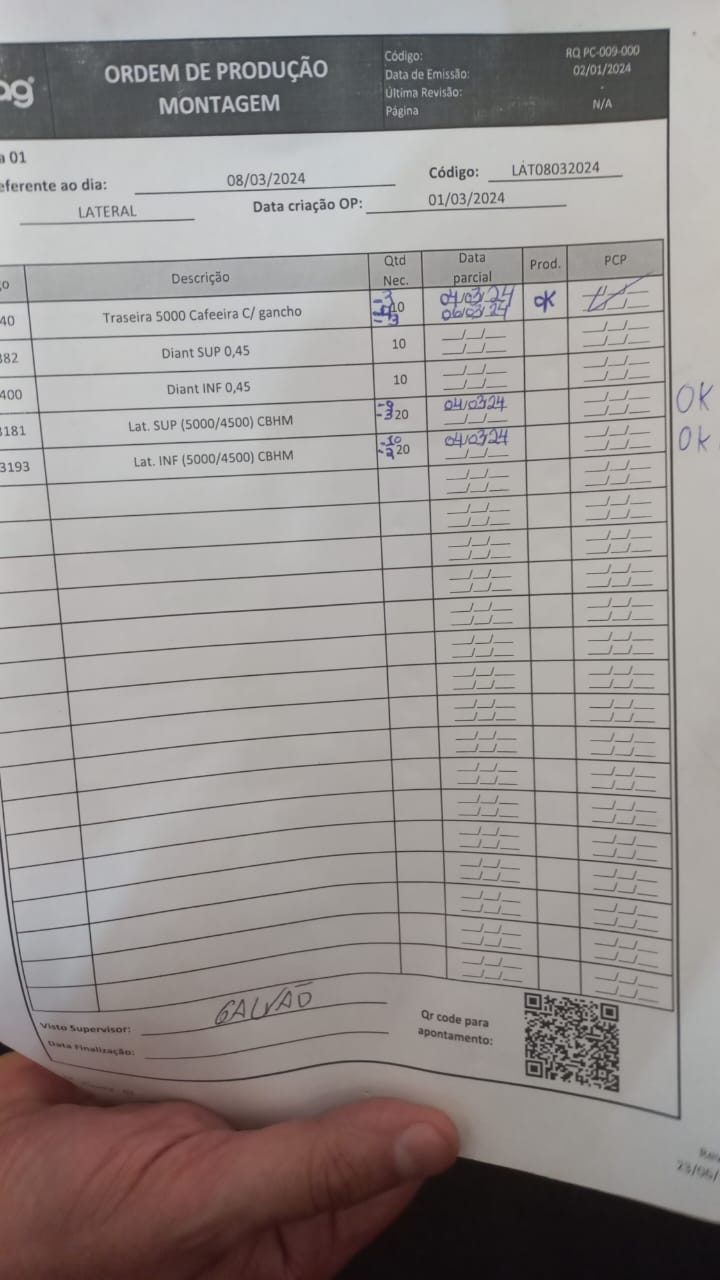 ag
ORDEM DE PRODUÇÃO
MONTAGEM
Código: RQ PC-009-000
Data de Emissão: 02/01/2024
Última Revisão: -
Página N/A
a 01
eferente ao dia: 08/03/2024 Código: LAT08032024
LATERAL Data criação OP: 01/03/2024
go Descrição Qtd Nec. Data parcial Prod. PCP
40 Traseira 5000 Cafeeira C/ gancho -3 10 04/03/24 06/03/24 OK
382 Diant SUP 0,45 10
400 Diant INF 0,45 10
3181 Lat. SUP (5000/4500) CBHM -9 -3 20 04/03/24 OK
3193 Lat. INF (5000/4500) CBHM -10 -2 20 04/03/24 OK
Visto Supervisor: GALVÃO
Data Finalização:
Qr code para
apontamento:
23/06/